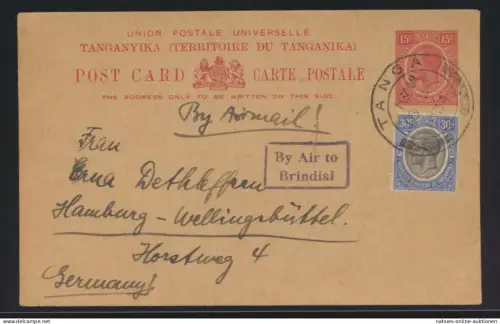 UNION POSTALE UNIVERSELLE
TANGANYIKA (TERRITOIRE DU TANGANIKA)
POST CARD CARTE POSTALE
THE ADDRESS ONLY TO BE WRITTEN ON THIS SIDE.
15c 15c
TANGA
30c 30c
By Airmail!
By Air to
Brindisi
Frau
Erna Dethleffsen
Hamburg-Wellingsbüttel.
Horstweg 4
Germany!
nahuen-online-auktionen
delcampe.net